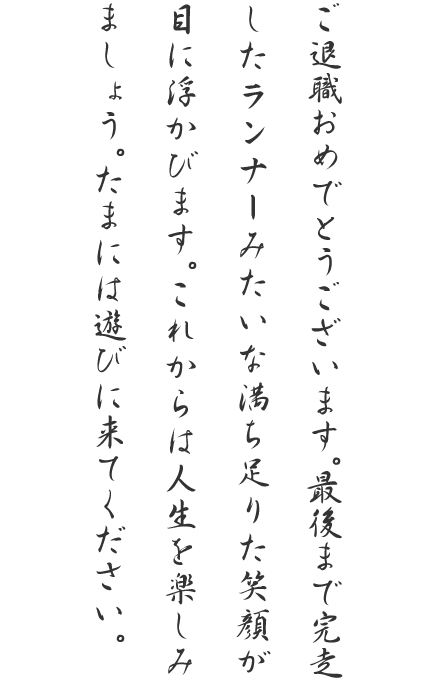 ご退職おめでとうございます。最後まで完走
したランナーみたいな満ち足りた笑顔が
目に浮かびます。これからは人生を楽しみ
ましょう。たまには遊びに来てください。